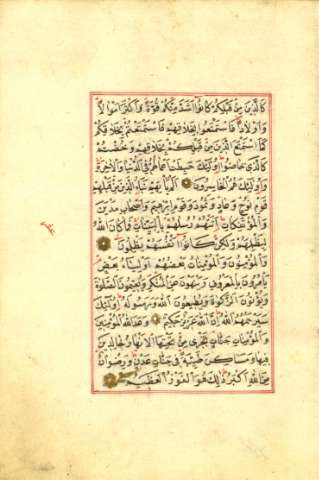 كَالَّذِينَ مِنْ قَبْلِكُمْ كَانُوا اَشَدَّ مِنْكُمْ قُوَّةً وَاَكْثَرَ اَمْوَالًا
وَاَوْلَادًا فَاسْتَمْتَعُوا بِخَلَاقِهِمْ فَاسْتَمْتَعْتُمْ بِخَلَاقِكُمْ
كَمَا اسْتَمْتَعَ الَّذِينَ مِنْ قَبْلِكُمْ بِخَلَاقِهِمْ وَخُضْتُمْ
كَالَّذِي خَاضُوا اُولٰئِكَ حَبِطَتْ اَعْمَالُهُمْ فِي الدُّنْيَا وَالْاٰخِرَةِ
وَاُولٰئِكَ هُمُ الْخَاسِرُونَ اَلَمْ يَأْتِهِمْ نَبَأُ الَّذِينَ مِنْ قَبْلِهِمْ
قَوْمِ نُوحٍ وَعَادٍ وَثَمُودَ وَقَوْمِ اِبْرٰهِيمَ وَاَصْحَابِ مَدْيَنَ
وَالْمُؤْتَفِكَاتِ اَتَتْهُمْ رُسُلُهُمْ بِالْبَيِّنَاتِ فَمَا كَانَ اللّٰهُ
لِيَظْلِمَهُمْ وَلٰكِنْ كَانُوا اَنْفُسَهُمْ يَظْلِمُونَ
وَالْمُؤْمِنُونَ وَالْمُؤْمِنَاتُ بَعْضُهُمْ اَوْلِيَاءُ بَعْضٍ
يَأْمُرُونَ بِالْمَعْرُوفِ وَيَنْهَوْنَ عَنِ الْمُنْكَرِ وَيُقِيمُونَ الصَّلٰوةَ
وَيُؤْتُونَ الزَّكٰوةَ وَيُطِيعُونَ اللّٰهَ وَرَسُولَهُ اُولٰئِكَ
سَيَرْحَمُهُمُ اللّٰهُ اِنَّ اللّٰهَ عَزِيزٌ حَكِيمٌ وَعَدَ اللّٰهُ الْمُؤْمِنِينَ
وَالْمُؤْمِنَاتِ جَنَّاتٍ تَجْرِي مِنْ تَحْتِهَا الْاَنْهَارُ خَالِدِينَ
فِيهَا وَمَسَاكِنَ طَيِّبَةً فِي جَنَّاتِ عَدْنٍ وَرِضْوَانٌ
مِنَ اللّٰهِ اَكْبَرُ ذٰلِكَ هُوَ الْفَوْزُ الْعَظِيمُ